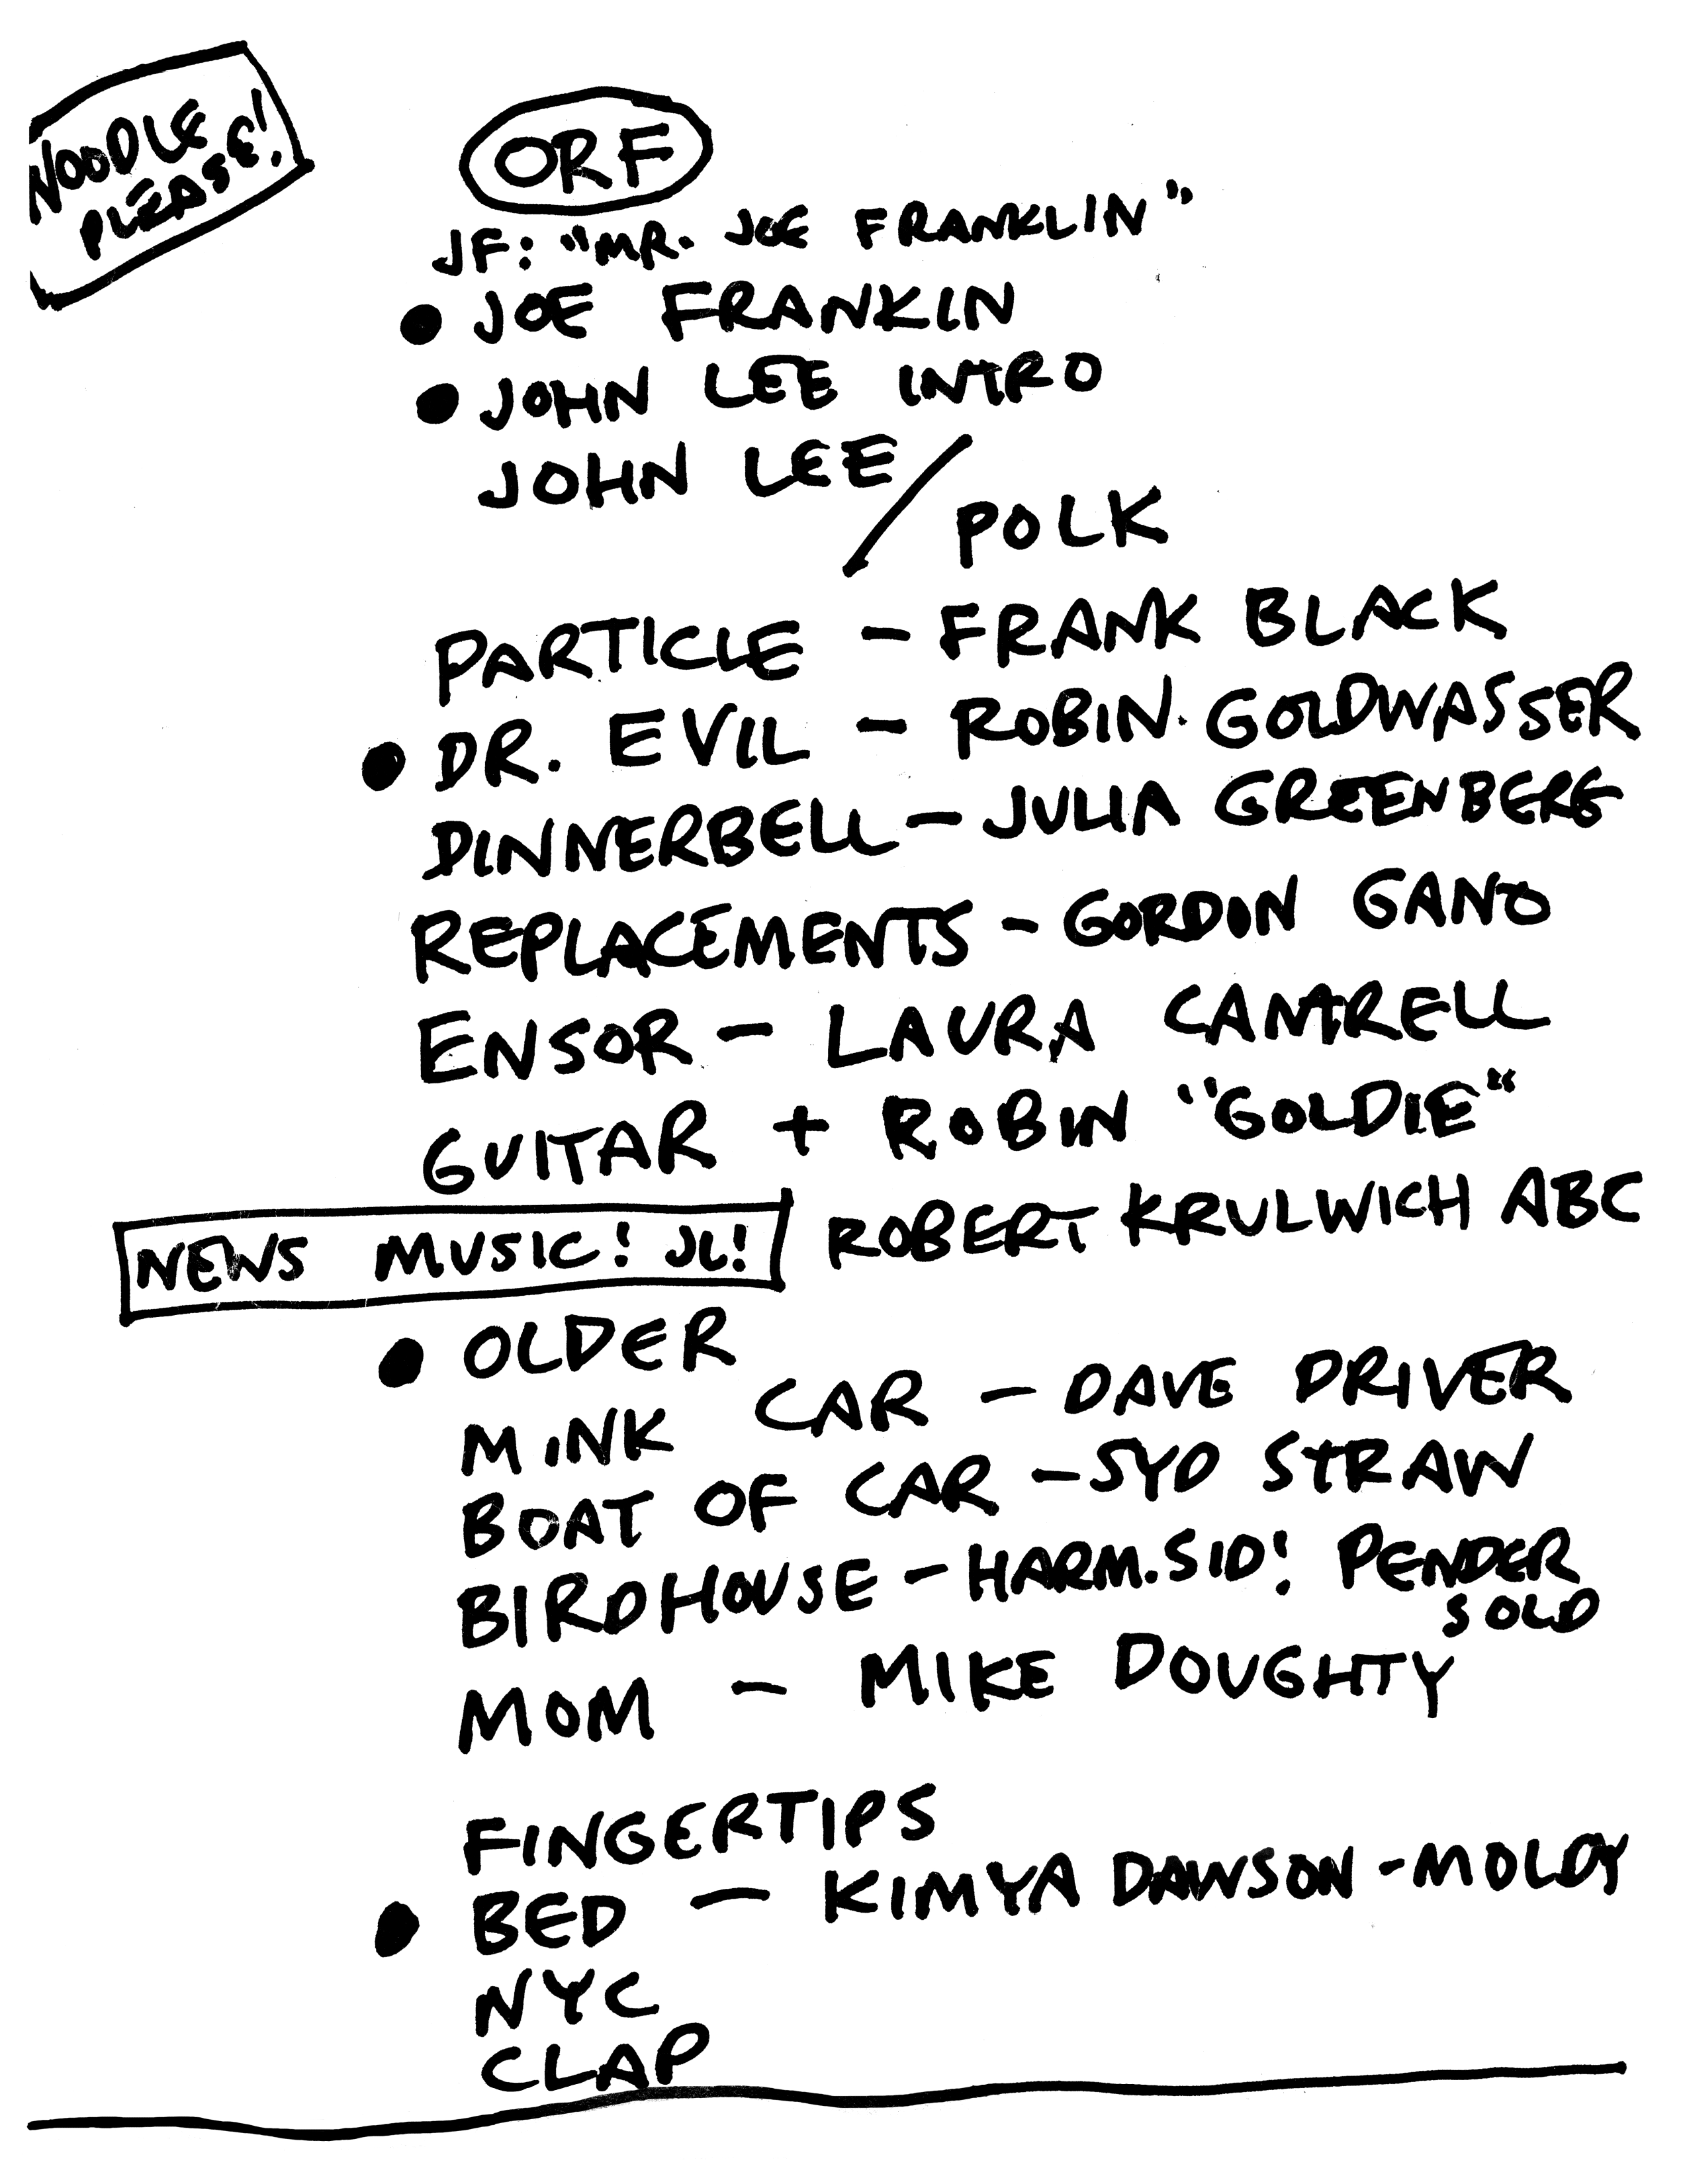 NOODLE
PLEASE!
ORF
JF: "MR. JOE FRANKLIN"
● JOE FRANKIN
● JOHN LEE INTRO
JOHN LEE /
POLK
PARTICLE - FRANK BLACK
● DR. EVIL - ROBIN. GOLDWASSER
DINNERBELL - JULIA GREENBERG
REPLACEMENTS - GORDON GANO
ENSOR - LAURA CANTRELL
GUITAR + ROBIN "GOLDIE"
NEWS MUSIC! JL! ROBERT KRULWICH ABC
● OLDER
MINK CAR - DAVE DRIVER
BOAT OF CAR - SYD STRAW
BIRDHOUSE - HARM. SID! PENDER
SOLD
MOM - MIKE DOUGHTY
FINGERTIPS
● BED - KIMYA DAWSON - MOLDY
NYC
CLAP